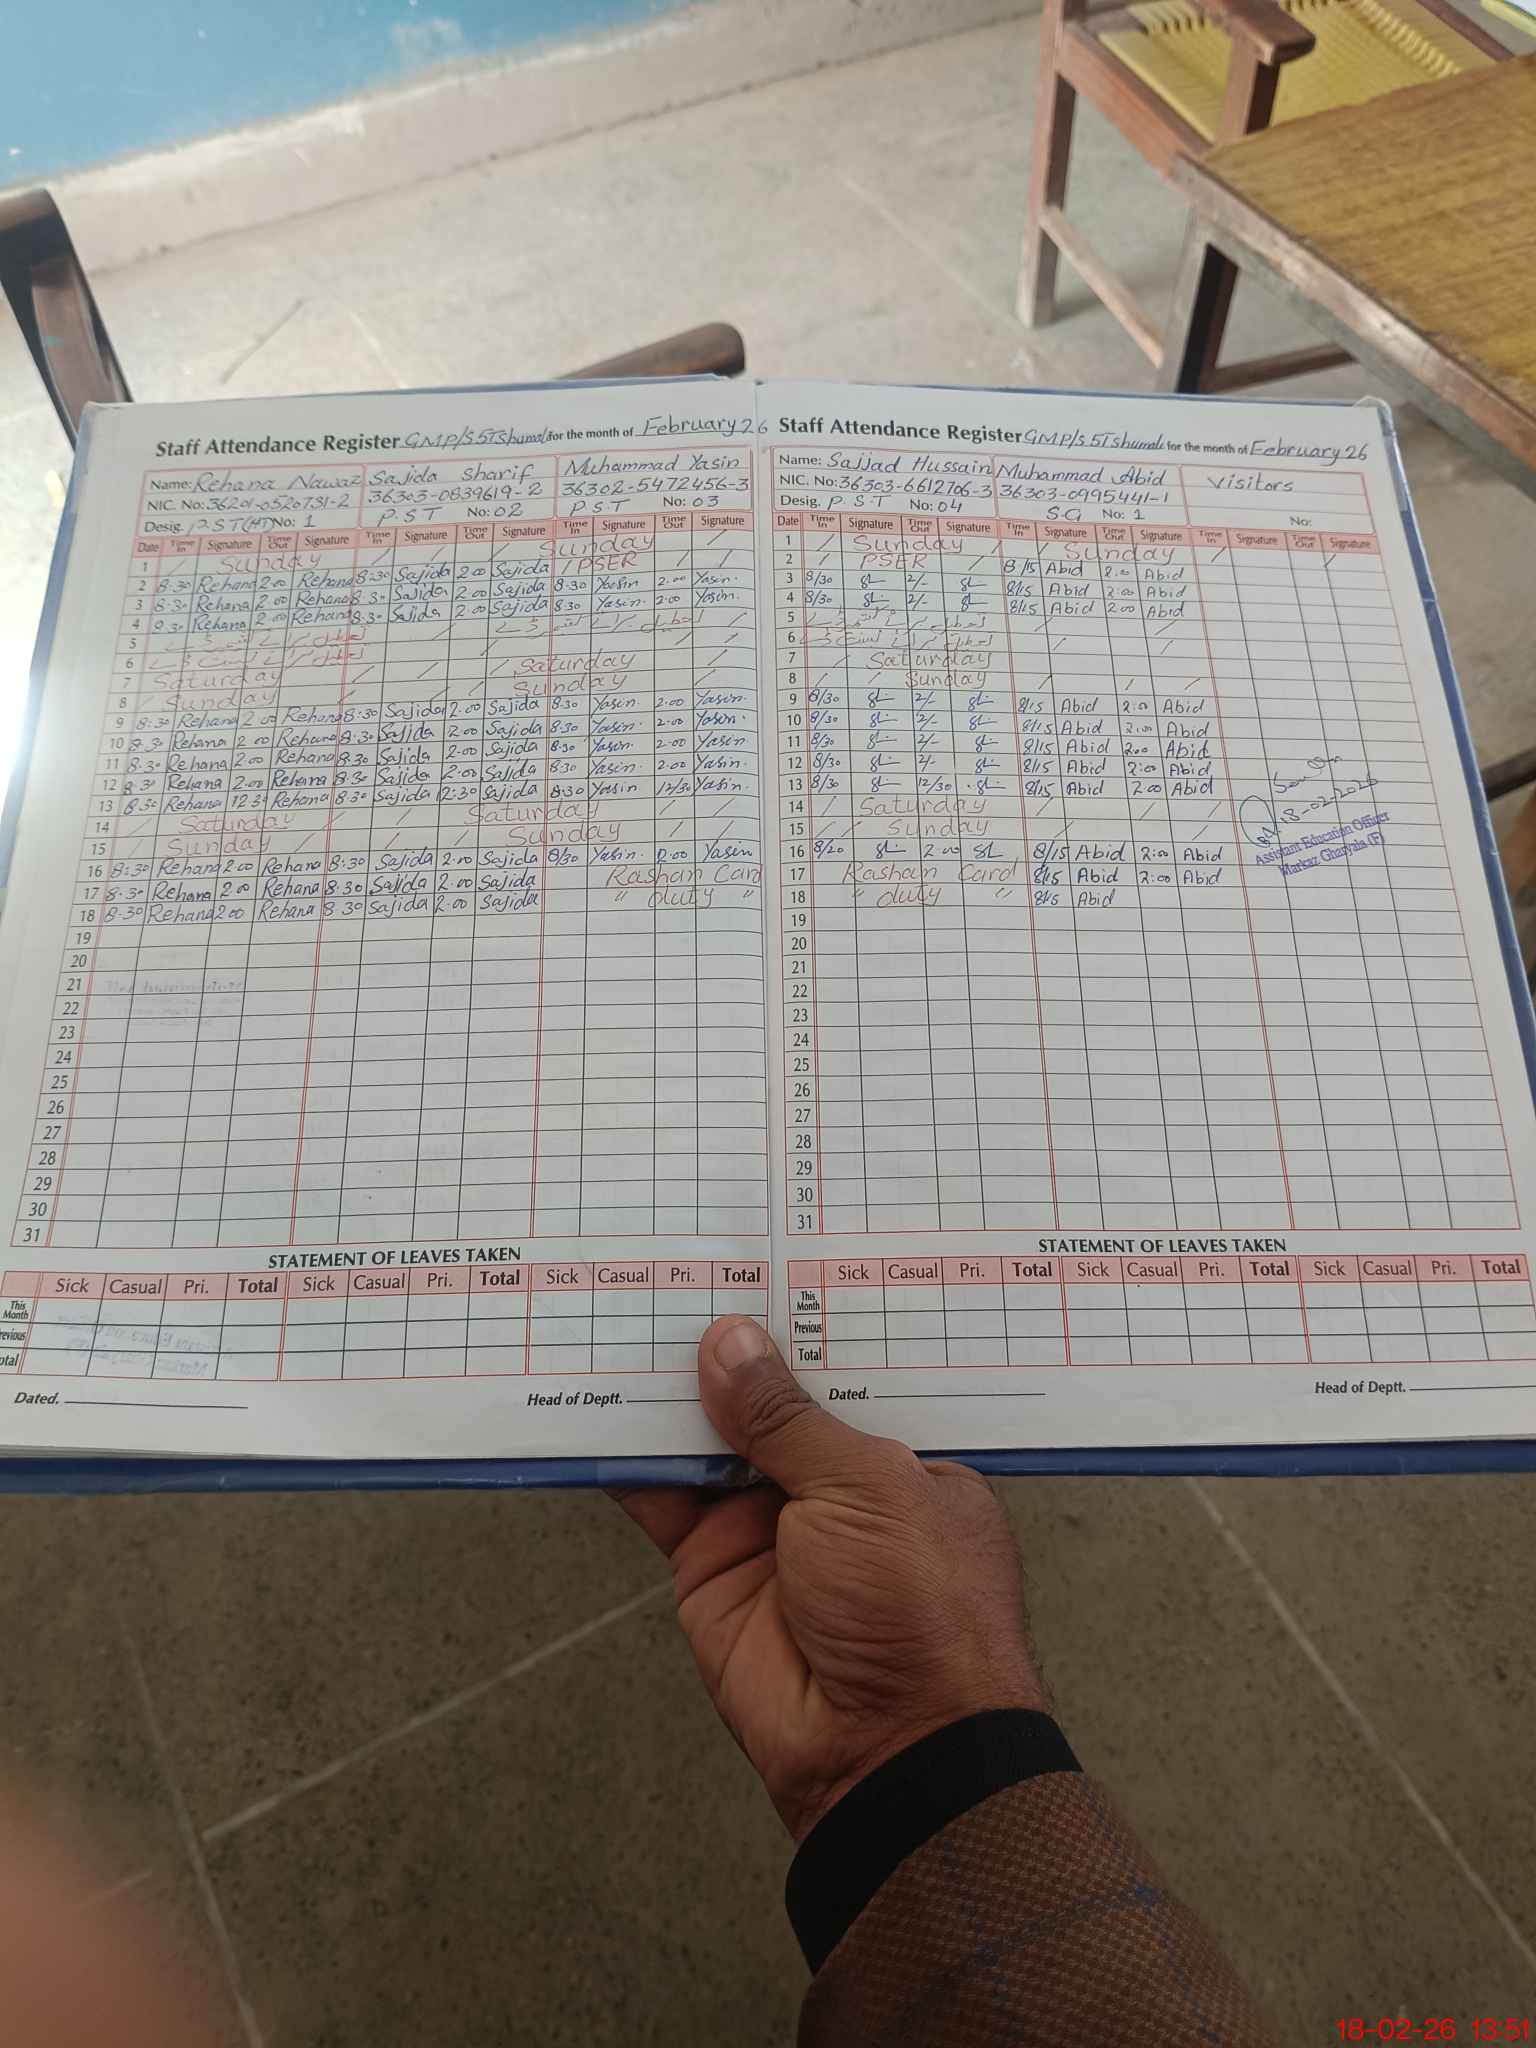 Staff Attendance Register GMP/S 5T Shumali for the month of February 26
Name: Rehana Nawaz Sajida Sharif Muhammad Yasin
NIC. No: 36201-0520731-2 36303-0839619-2 36302-5472456-3
Desig. P.S.T(HT) No: 1 P.S.T No: 02 P.S.T No: 03
Date Time In Signature Time Out Signature Time In Signature Time Out Signature Time In Signature Time Out Signature
1 Sunday Sunday
2 8:30 Rehana 2.00 Rehana 8:30 Sajida 2.00 Sajida PSER
3 8:30 Rehana 2.00 Rehana 8:30 Sajida 2.00 Sajida 8:30 Yasin 2.00 Yasin.
4 8:30 Rehana 2.00 Rehana 8:30 Sajida 2.00 Sajida 8:30 Yasin. 2.00 Yasin.
5
6
7 Saturday Saturday
8 Sunday Sunday
9 8:30 Rehana 2.00 Rehana 8:30 Sajida 2.00 Sajida 8:30 Yasin. 2.00 Yasin.
10 8:30 Rehana 2.00 Rehana 8:30 Sajida 2.00 Sajida 8:30 Yasin. 2.00 Yasin.
11 8:30 Rehana 2.00 Rehana 8:30 Sajida 2.00 Sajida 8:30 Yasin. 2.00 Yasin.
12 8:30 Rehana 2.00 Rehana 8:30 Sajida 2.00 Sajida 8:30 Yasin. 2.00 Yasin.
13 8:30 Rehana 12:30 Rehana 8:30 Sajida 12:30 Sajida 8:30 Yasin 12/30 Yasin.
14 Saturday Saturday
15 Sunday Sunday
16 8:30 Rehana 2.00 Rehana 8:30 Sajida 2.00 Sajida 8/30 Yasin. 2.00 Yasin
17 8:30 Rehana 2.00 Rehana 8:30 Sajida 2.00 Sajida Rashan Card
18 8:30 Rehana 2.00 Rehana 8:30 Sajida 2.00 Sajida " duty "
19
20
21
22
23
24
25
26
27
28
29
30
31
STATEMENT OF LEAVES TAKEN
Sick Casual Pri. Total Sick Casual Pri. Total Sick Casual Pri. Total
This Month
Previous
Total
Dated. Head of Deptt.
Staff Attendance Register GMP/S 5T Shumali for the month of February 26
Name: Sajjad Hussain Muhammad Abid Visitors
NIC. No: 36303-6612706-3 36303-0995441-1
Desig. P.S.T No: 04 S.G No: 1 No:
Date Time In Signature Time Out Signature Time In Signature Time Out Signature Time In Signature Time Out Signature
1 Sunday Sunday
2 PSER 8/15 Abid 2:00 Abid
3 8/30 2/- 8/15 Abid 2:00 Abid
4 8/30 2/- 8/15 Abid 2:00 Abid
5
6
7 Saturday
8 Sunday
9 8/30 2/- 8/15 Abid 2:00 Abid
10 8/30 2/- 8/15 Abid 2:00 Abid
11 8/30 2/- 8/15 Abid 2:00 Abid
12 8/30 2/- 8/15 Abid 2:00 Abid
13 8/30 12/30 8/15 Abid 2:00 Abid
14 Saturday
15 Sunday
16 2.00 8/15 Abid 2:00 Abid
17 Rashan Card 8/15 Abid 2:00 Abid
18 " duty " 8/15 Abid
19
20
21
22
23
24
25
26
27
28
29
30
31
18-02-2026
Assistant Education Officer
Markaz Gharyala (F)
STATEMENT OF LEAVES TAKEN
Sick Casual Pri. Total Sick Casual Pri. Total Sick Casual Pri. Total
This Month
Previous
Total
Dated. Head of Deptt.
18-02-26 13:51